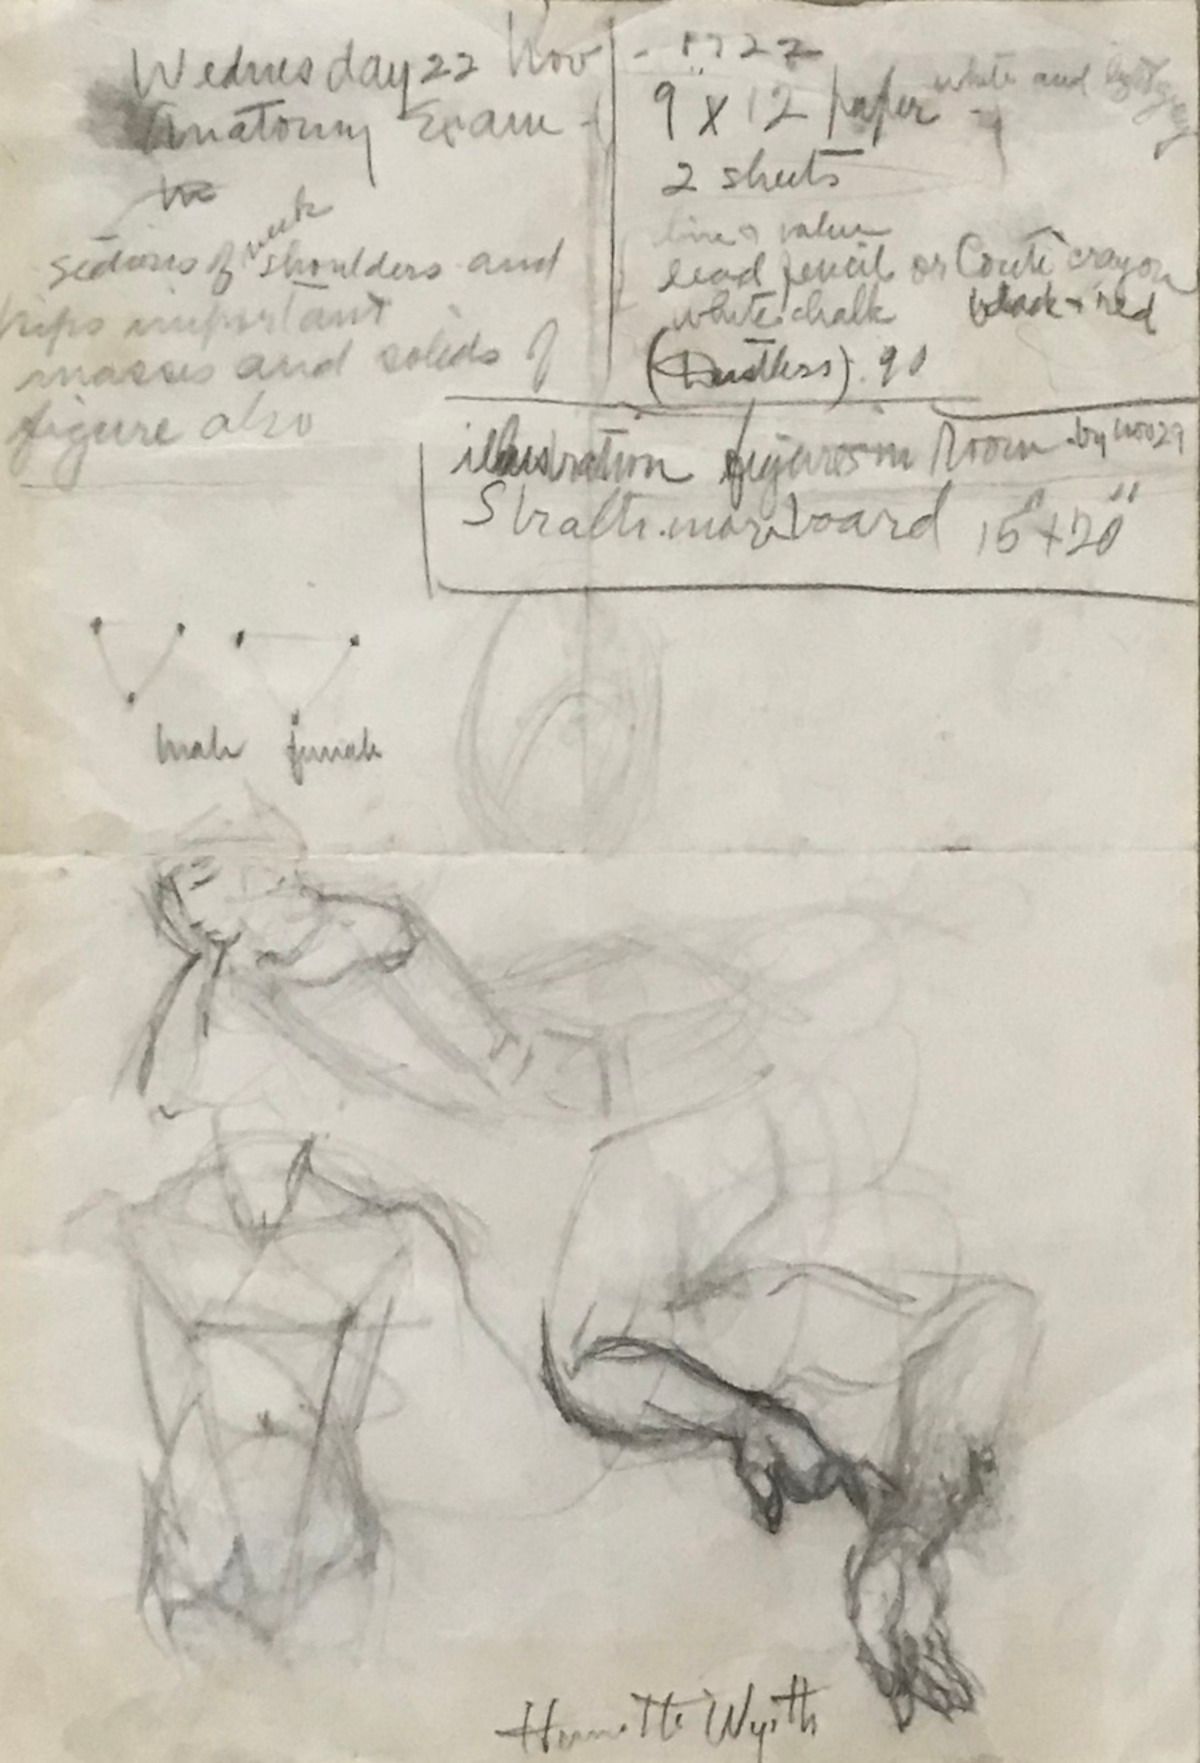 Wednesday 22 Nov
Anatomy Exam -
sections of neck shoulders and
hips important
masses and solids of
figure also
22
9 x 12 paper - white and light gray
2 sheets
line & value
lead pencil or Conté crayon
white chalk black & red
(Dustless) .90
illustration figures in Room by Nov 29
Strathmore board 15" x 20"
male female
Henriette Wyeth